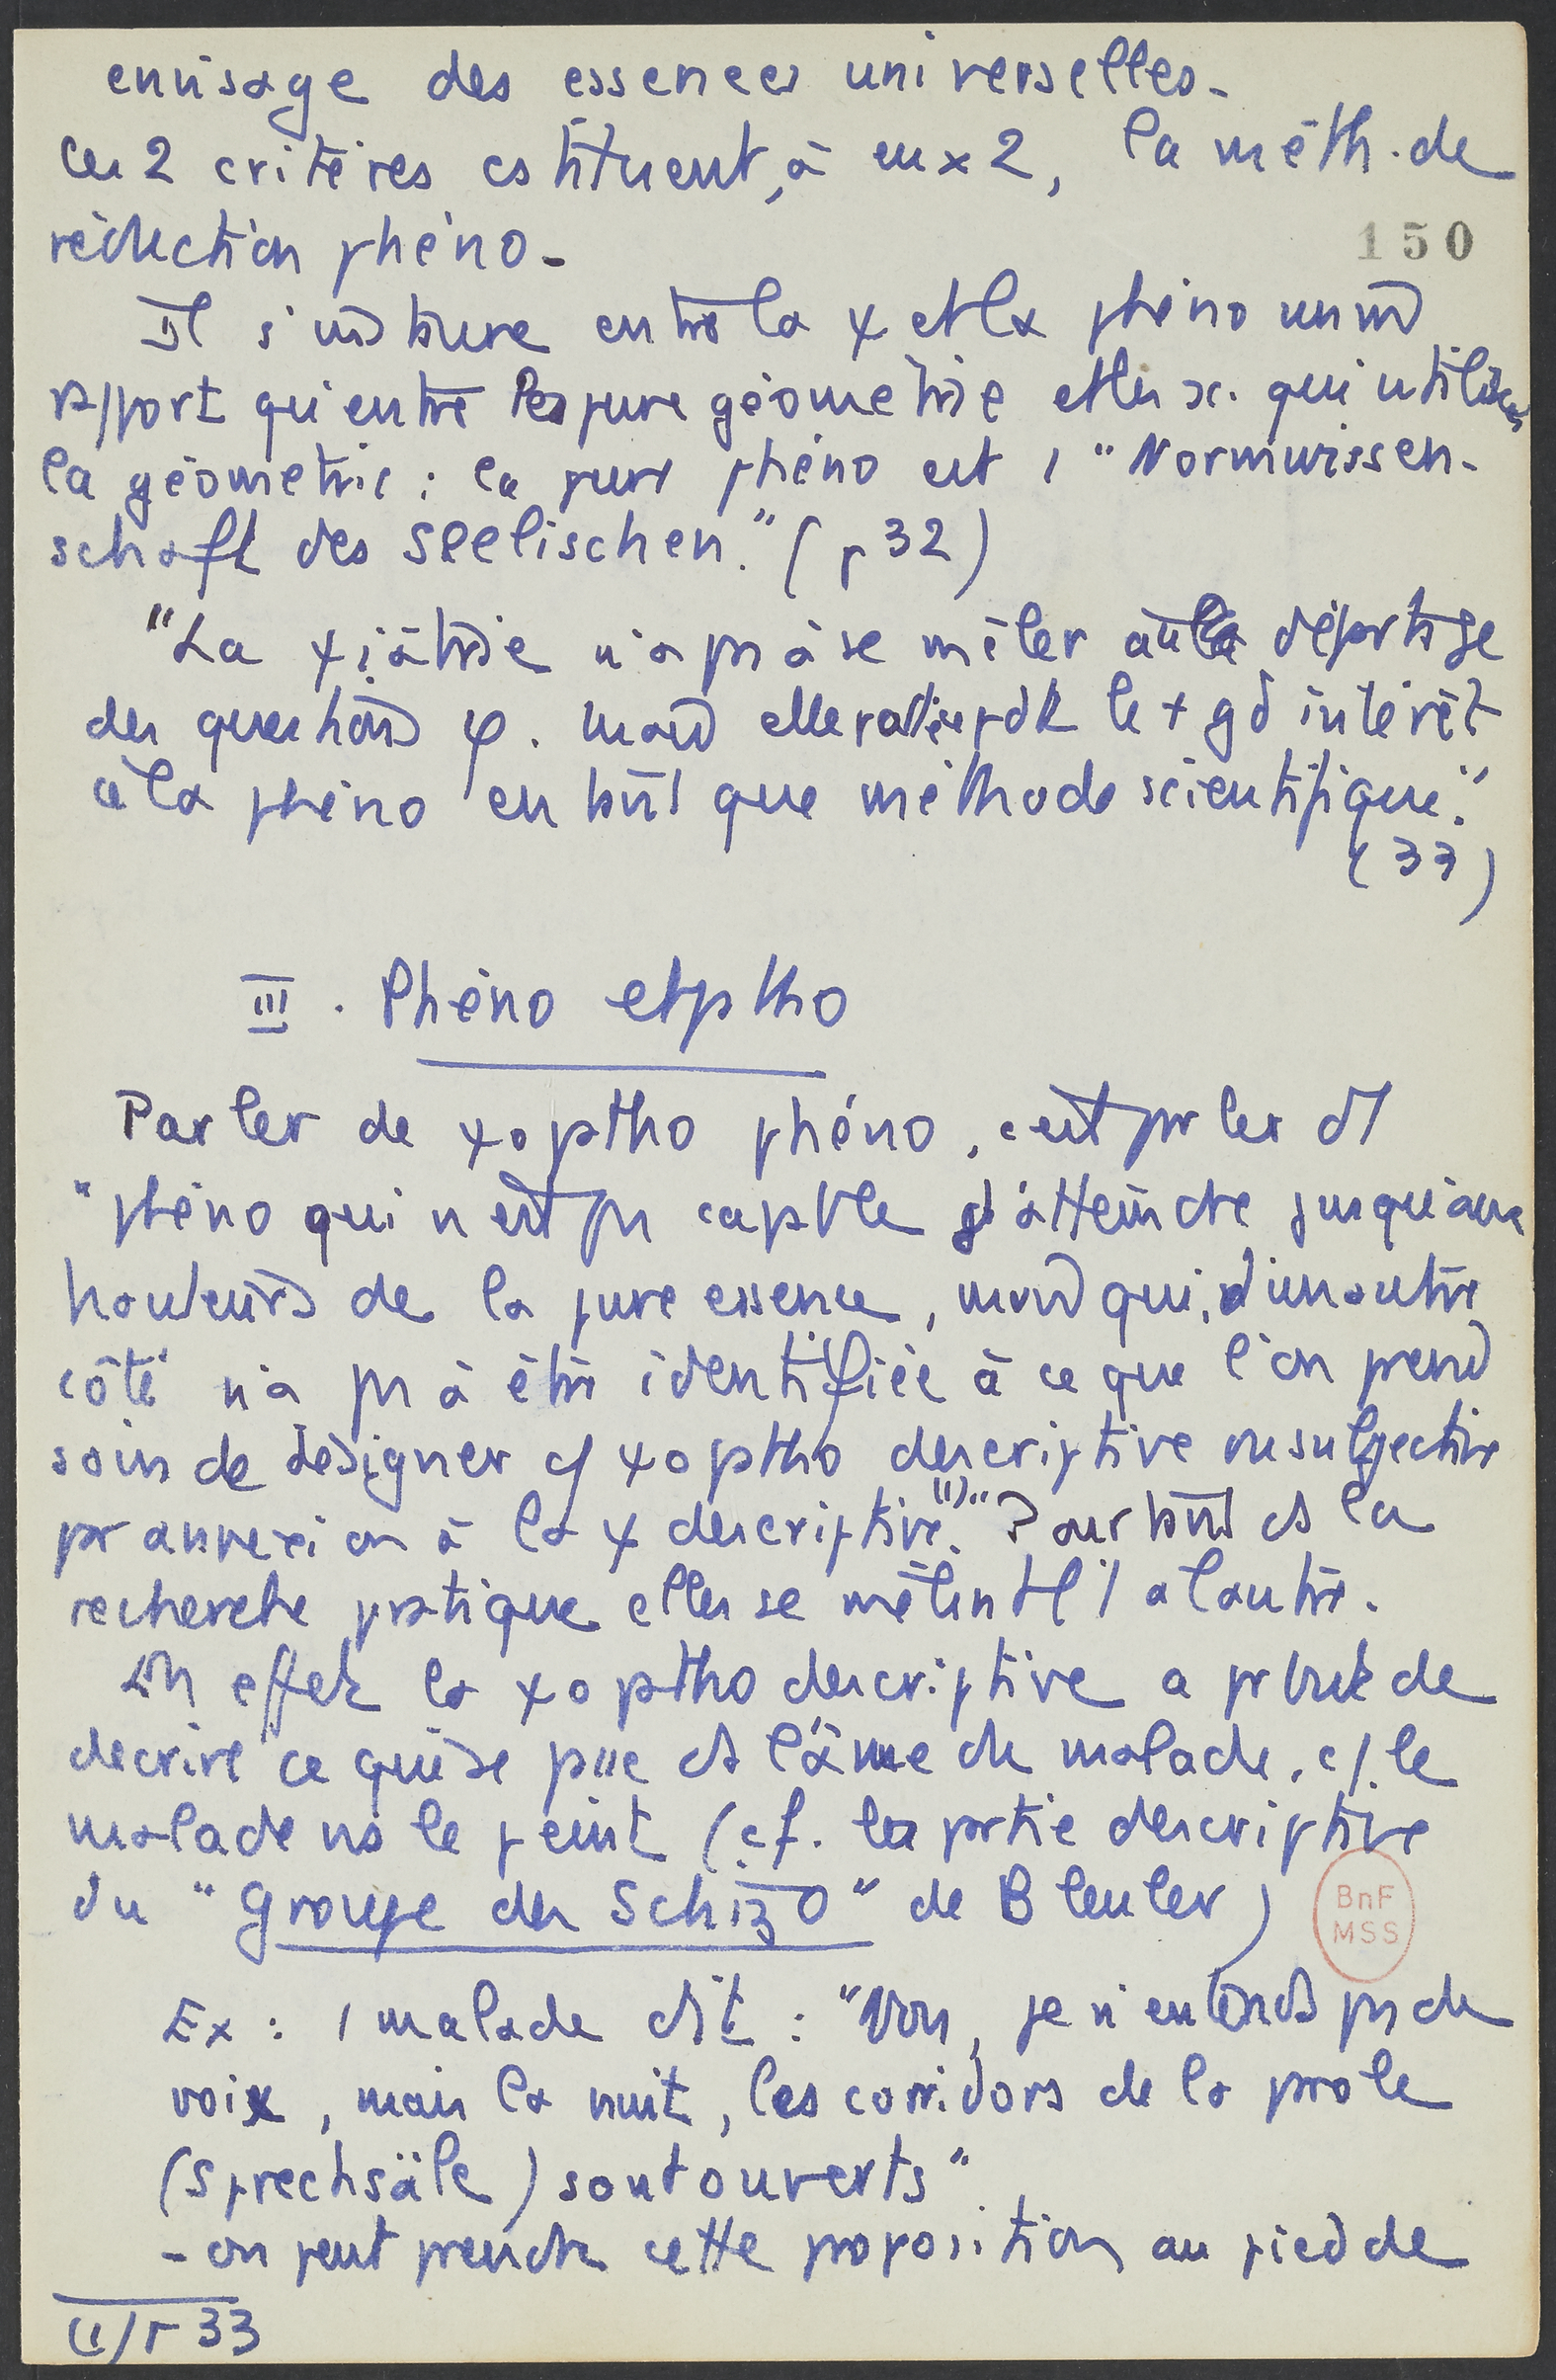 envisage des essences universelles.
Ces 2 critères cstituent, à eux 2, la méth. de
réduction phéno.
150
Il s'instaure entre la ψ et la phéno un
rpport qui entre pure géométrie et les sc. qui utilisent
la géométrie : la pure phéno est 1 "Normwissen-
schaft des Seelischen." (p 32)
"La ψiatrie n'a pas à se mêler à la
des questions φ. mais elle pdt le + gd intérêt
à la phéno en tant que méthode scientifique."
(33)
III. Phéno et ptho
Parler de ψoptho phéno, c'est prler d'1
"phéno qui n'est pas capble d'atteindre jusqu'aux
hauteurs de la pure essence, mais qui, d'un autre
côté n'a pas à être identifiée à ce que l'on prend
soin de désigner c/ ψoptho descriptive ou subjective
pr annexion à la ψ descriptive (1)." Pourtant ds la
recherche prtique elles se mêlent l'1 à l'autre.
En effet la ψoptho descriptive a pr but de
décrire ce qui se psse ds l'âme du malade, c/ le
malade ns le peint (cf. la prtie descriptive
du "Groupe des Schizo" de Bleuler)
BnF
MSS
Ex : 1 malade dit : "Non, je n'entends pas de
voix, mais la nuit, les corridors de la prole
(Sprechsäle) sont ouverts"
- on peut prendre cette proposition au pied de
(1) p 33